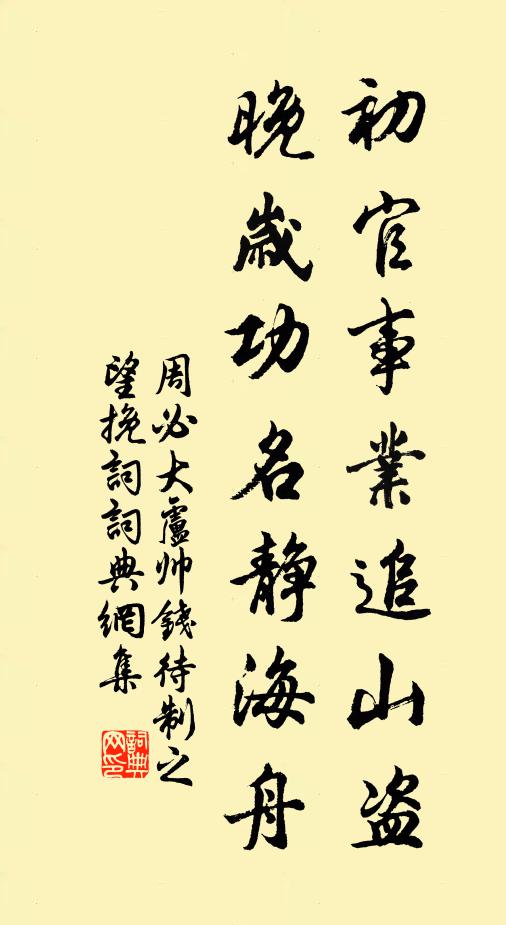 初官事業追山盗
晚歲功名静海舟
周必大盧帅錢待制之
望挽詞詞典網集
詞典
网印